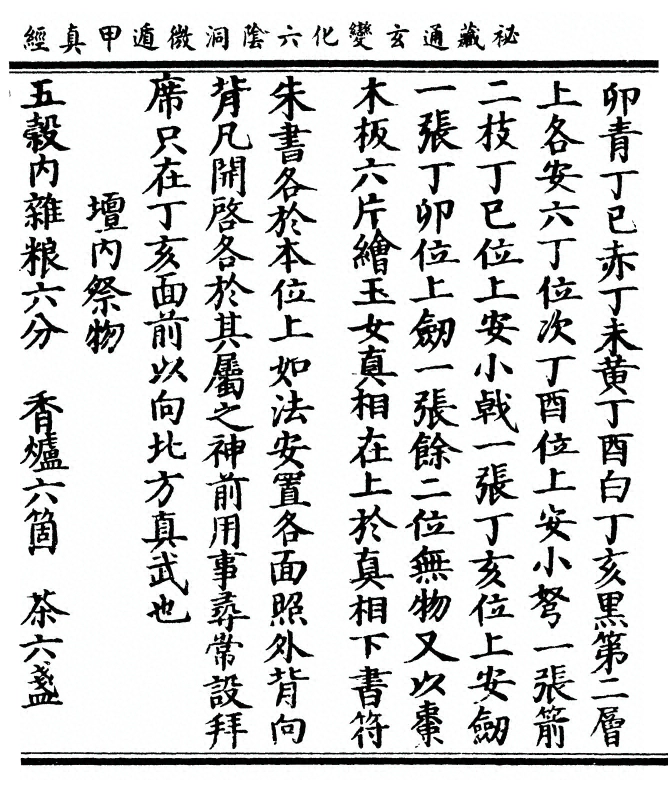 祕藏通玄變化六陰洞微遁甲真經
卯青丁巳赤丁未黄丁酉白丁亥黑第二層
上各安六丁位次丁酉位上安小弩一張箭
二枝丁巳位上安小戟一張丁亥位上安劒
一張丁卯位上劒一張餘二位無物又以棗
木板六片繪玉女真相在上於真相下書符
朱書各於本位上如法安置各面照外背向
背凡開啓各於其屬之神前用事尋常設拜
席只在丁亥面前以向北方真武也
壇内祭物
五穀内雜粮六分　香爐六箇　茶六盞